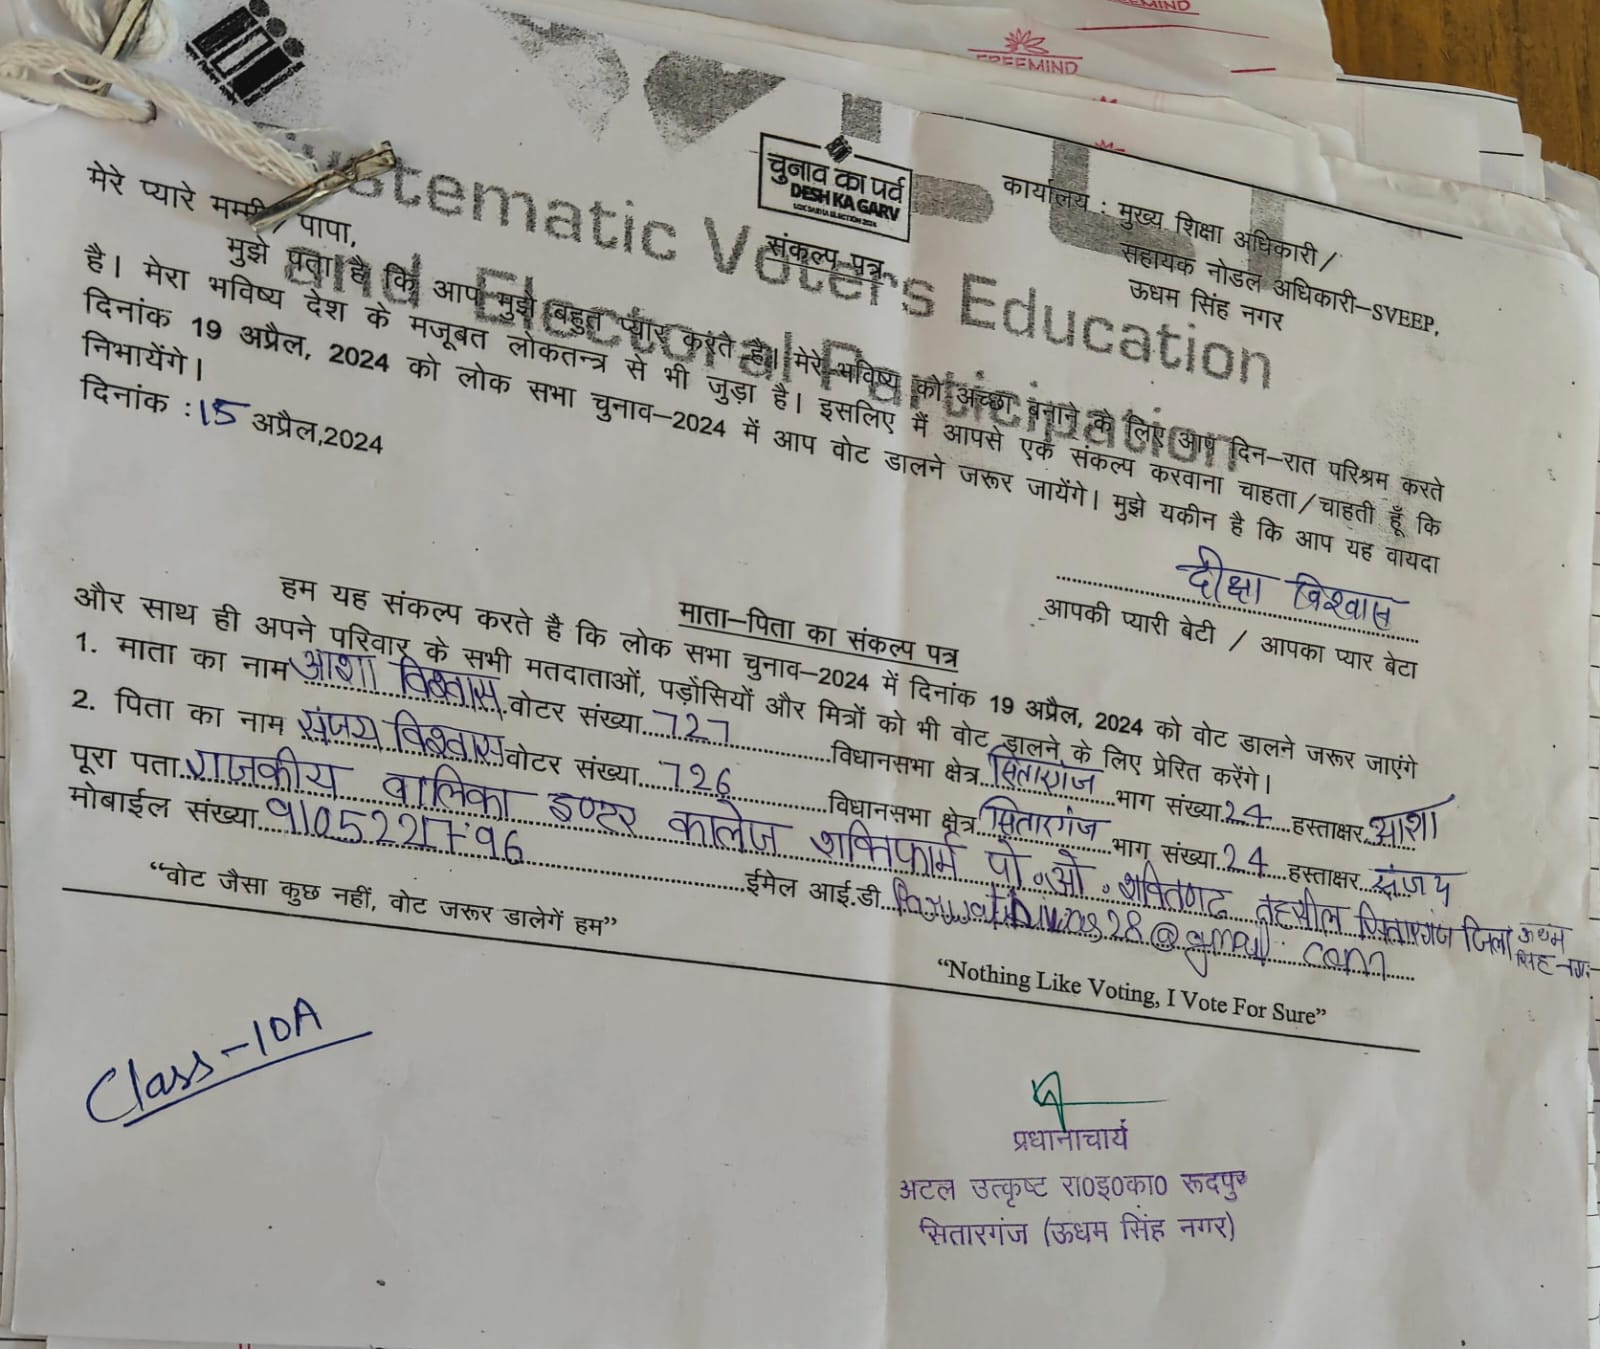 FREEMIND
FREEMIND
Systematic Voters Education
and Electoral Participation
चुनाव का पर्व
DESH KA GARV
LOK SABHA ELECTION 2024
कार्यालय : मुख्य शिक्षा अधिकारी /
सहायक नोडल अधिकारी–SVEEP,
ऊधम सिंह नगर
संकल्प पत्र
मेरे प्यारे मम्मी / पापा,
मुझे पता है कि आप मुझे बहुत प्यार करते है। मेरे भविष्य को अच्छा बनाने के लिए आप दिन–रात परिश्रम करते
है। मेरा भविष्य देश के मजूबत लोकतन्त्र से भी जुड़ा है। इसलिए मैं आपसे एक संकल्प करवाना चाहता/चाहती हूँ कि
दिनांक 19 अप्रैल, 2024 को लोक सभा चुनाव–2024 में आप वोट डालने जरूर जायेंगे। मुझे यकीन है कि आप यह वायदा
निभायेंगे।
दिनांक : 15 अप्रैल,2024
दीक्षा विश्वास
आपकी प्यारी बेटी / आपका प्यार बेटा
माता–पिता का संकल्प पत्र
हम यह संकल्प करते है कि लोक सभा चुनाव–2024 में दिनांक 19 अप्रैल, 2024 को वोट डालने जरूर जाएंगे
और साथ ही अपने परिवार के सभी मतदाताओं, पड़ोसियों और मित्रों को भी वोट डालने के लिए प्रेरित करेंगे।
1. माता का नाम आशा विश्वास वोटर संख्या 727 विधानसभा क्षेत्र सितारगंज भाग संख्या 24 हस्ताक्षर आशा
2. पिता का नाम संजय विश्वास वोटर संख्या 726 विधानसभा क्षेत्र सितारगंज भाग संख्या 24 हस्ताक्षर संजय
पूरा पता राजकीय बालिका इण्टर कालेज शक्तिफार्म पो.ओ. शक्तिगढ तहसील सितारगंज जिला ऊधम सिंह नगर
मोबाईल संख्या 9105221796 ईमेल आई.डी @gmail.com
“वोट जैसा कुछ नहीं, वोट जरूर डालेगें हम”
“Nothing Like Voting, I Vote For Sure”
Class-10A
प्रधानाचार्य
अटल उत्कृष्ट रा0इ0का0 रूदपुर
सितारगंज (ऊधम सिंह नगर)